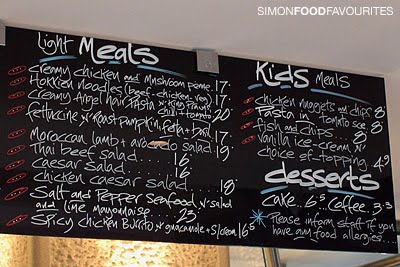 SIMONFOODFAVOURITES
Light Meals
creamy chicken and Mushroom penne. 17.
Hokkien noodles (beef-chicken-veg) 17.
Creamy Angel hair Pasta w king Prawns
chilli + tomato 20
Fettuccine w Roast pumpkin, Feta + basil 17.
Moroccan lamb + avocado salad. 19.
Thai beef salad.... 16.
Caesar Salad... 16.
Chicken caesar salad.... 18.
Salt and Pepper Seafood w salad
and lime Mayonnaise.... 23
Spicy Chicken Burrito w guacamole + s/cream. 16.5
Kids Meals
chicken nuggets and chips. 8.
Pasta in Tomato sce 8.
fish and chips... 8.
vanilla ice cream w
choice of topping 4.9
desserts
Cake.. 6.5 Coffee. 3.3
Please inform staff if you
have any food allergies....